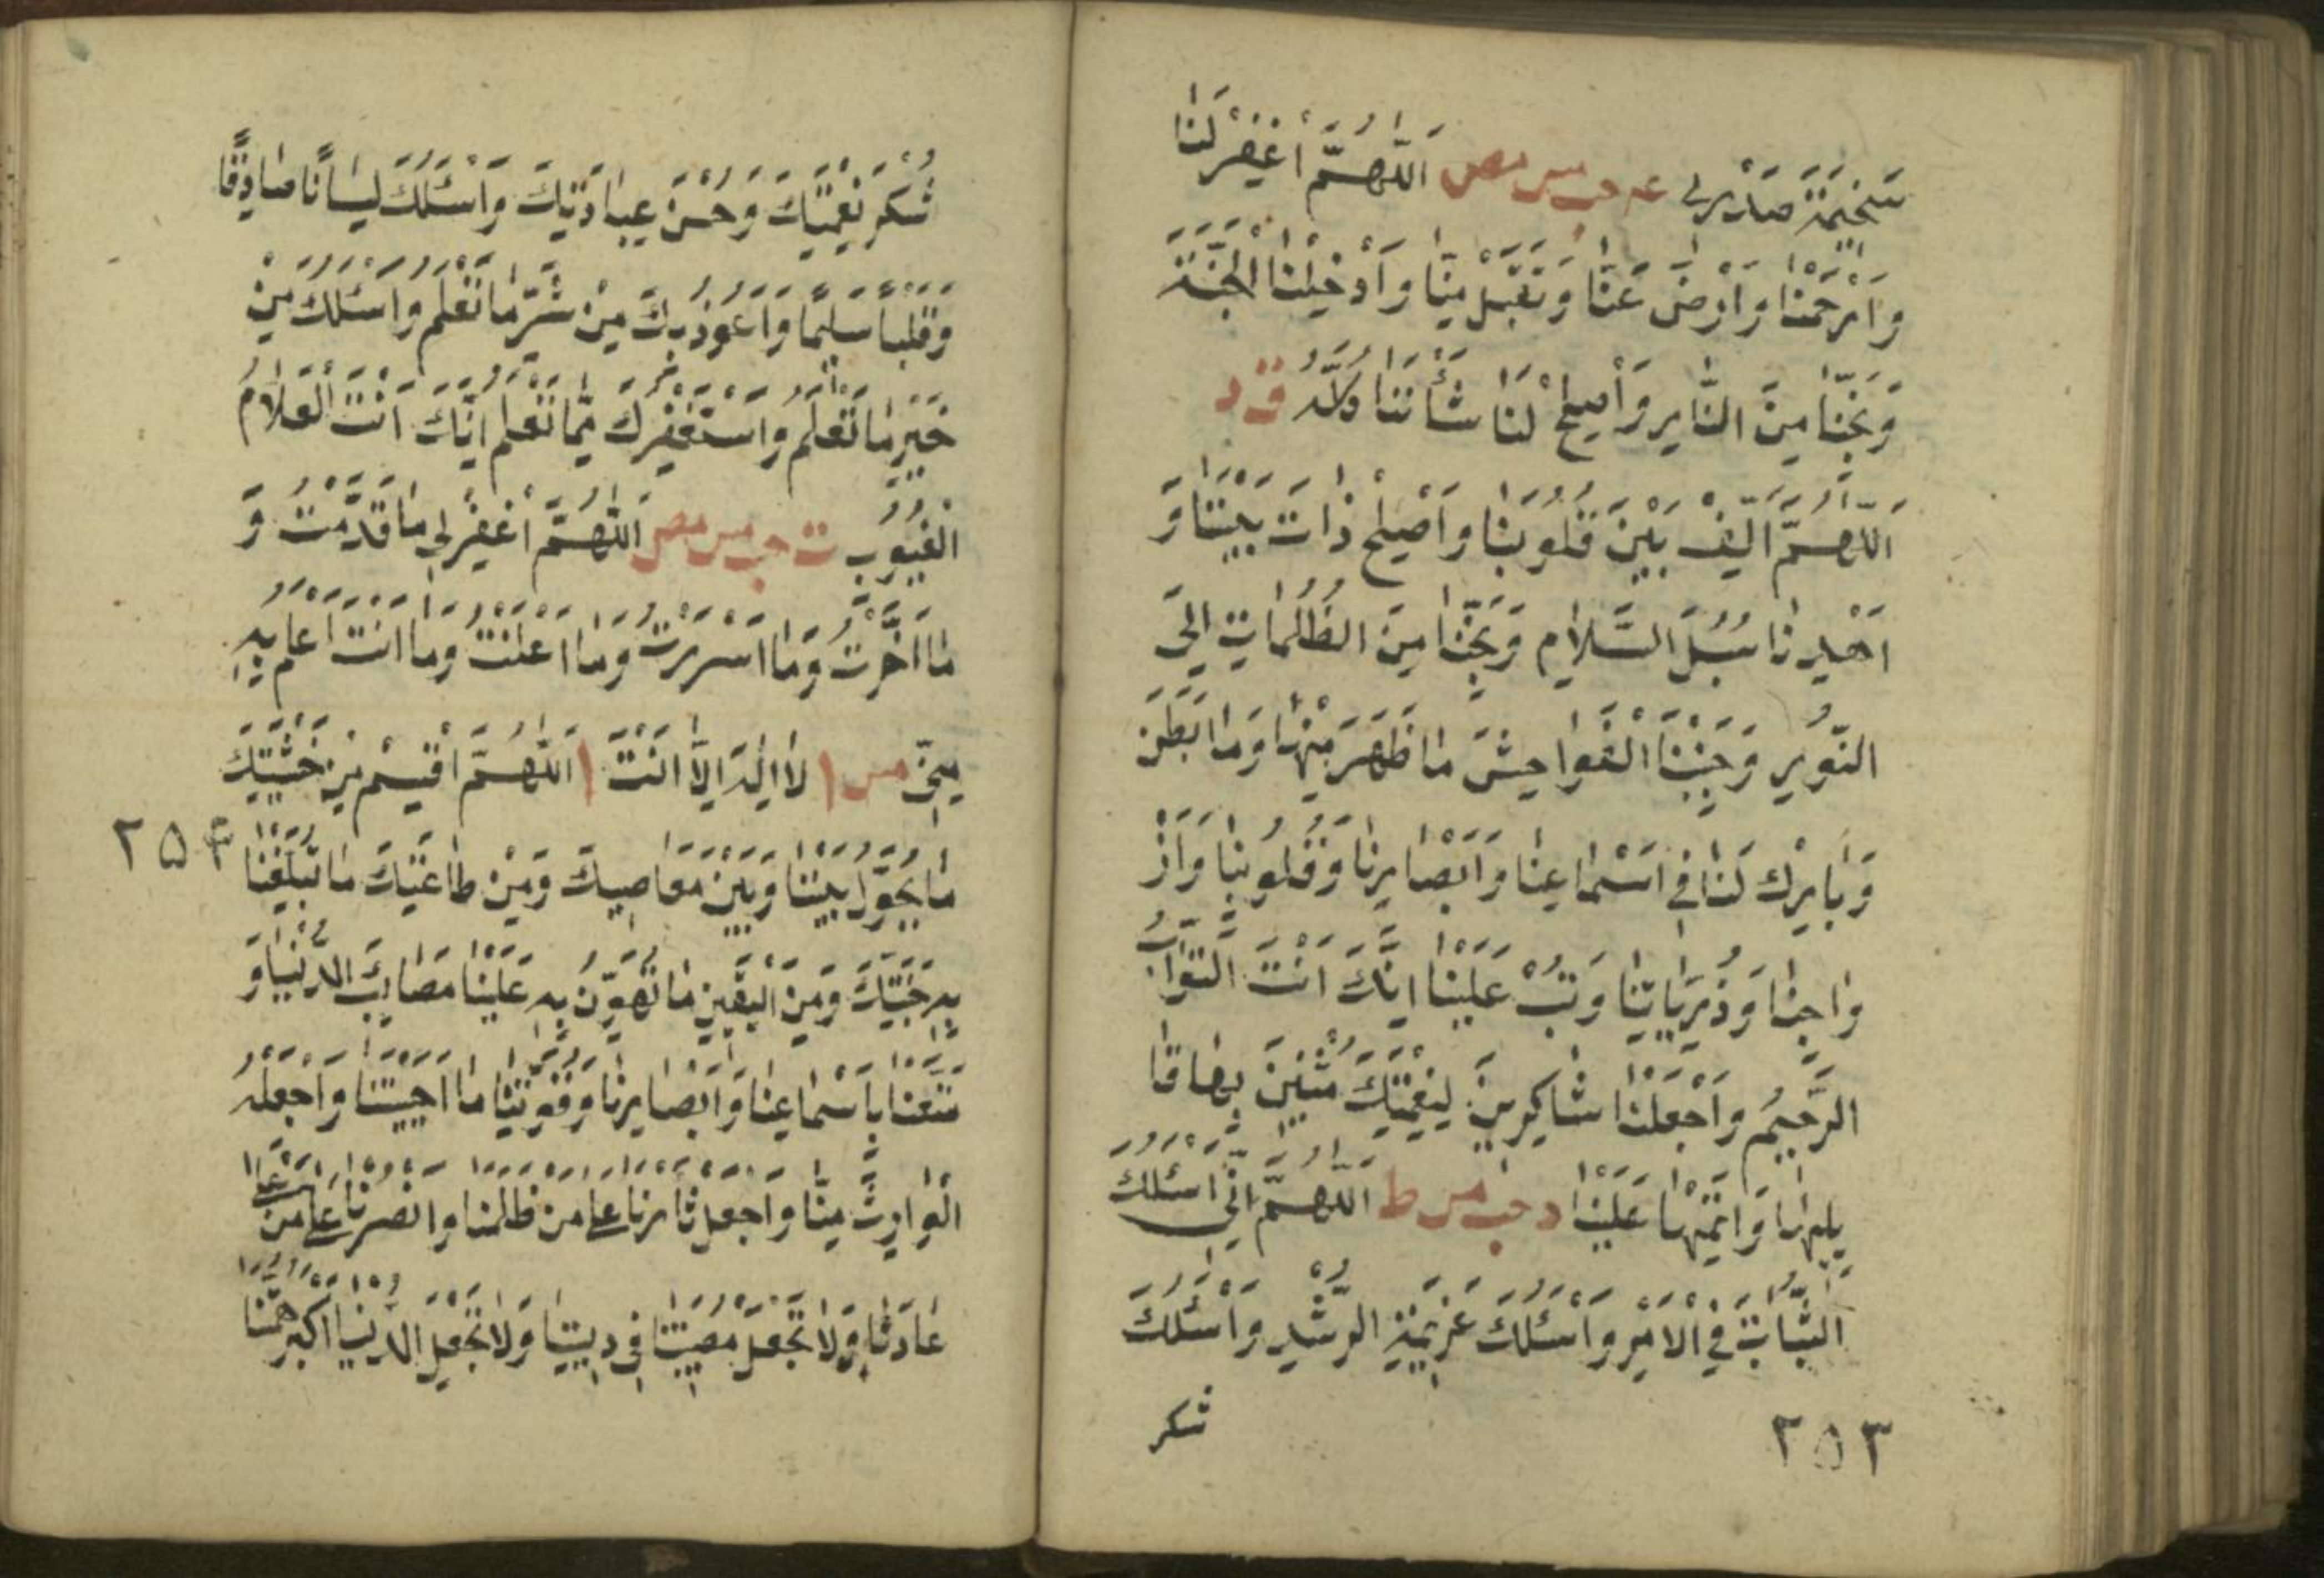 سَخِيمَةَ صَدْرِي عه حب مس مص اَللّٰهُمَّ اغْفِرْ لَنَا
وَارْحَمْنَا وَارْضَ عَنَّا وَتَقَبَّلْ مِنَّا وَاَدْخِلْنَا الْجَنَّةَ
وَنَجِّنَا مِنَ النَّارِ وَاَصْلِحْ لَنَا شَأْنَنَا كُلَّهُ ق د
اَللّٰهُمَّ اَلِّفْ بَيْنَ قُلُوبِنَا وَاَصْلِحْ ذَاتَ بَيْنِنَا وَ
اهْدِنَا سُبُلَ السَّلَامِ وَنَجِّنَا مِنَ الظُّلُمَاتِ اِلَى
النُّورِ وَجَنِّبْنَا الْفَوَاحِشَ مَا ظَهَرَ مِنْهَا وَمَا بَطَنَ
وَبَارِكْ لَنَا فِي اَسْمَاعِنَا وَاَبْصَارِنَا وَقُلُوبِنَا وَاَزْ
وَاجِنَا وَذُرِّيَّاتِنَا وَتُبْ عَلَيْنَا اِنَّكَ اَنْتَ التَّوَّابُ
الرَّحِيمُ وَاجْعَلْنَا شَاكِرِينَ لِنِعْمَتِكَ مُثْنِينَ بِهَا قَا
بِلِيهَا وَاَتِمَّهَا عَلَيْنَا د حب مس ط اَللّٰهُمَّ اِنِّي اَسْئَلُكَ
الثَّبَاتَ فِي الْاَمْرِ وَاَسْئَلُكَ عَزِيمَةَ الرُّشْدِ وَاَسْئَلُكَ
شكر
٢٥٣
شُكْرَ نِعْمَتِكَ وَحُسْنَ عِبَادَتِكَ وَاَسْئَلُكَ لِسَانًا صَادِقًا
وَقَلْبًا سَلِيمًا وَاَعُوذُ بِكَ مِنْ شَرِّ مَا تَعْلَمُ وَاَسْئَلُكَ مِنْ
خَيْرِ مَا تَعْلَمُ وَاَسْتَغْفِرُكَ مِمَّا تَعْلَمُ اِنَّكَ اَنْتَ الْعَلَّامُ
الْغُيُوبِ ت حب مس مص اَللّٰهُمَّ اغْفِرْ لِي مَا قَدَّمْتُ وَ
مَا اَخَّرْتُ وَمَا اَسْرَرْتُ وَمَا اَعْلَنْتُ وَمَا اَنْتَ اَعْلَمُ بِهِ
مِنِّي مس ا لَا اِلٰهَ اِلَّا اَنْتَ ا اَللّٰهُمَّ اقْسِمْ مِنْ خَشْيَتِكَ
مَا يَحُولُ بَيْنَنَا وَبَيْنَ مَعَاصِيكَ وَمِنْ طَاعَتِكَ مَا تُبَلِّغُنَا
٢٥٤
بِهِ جَنَّتَكَ وَمِنَ الْيَقِينِ مَا تُهَوِّنُ بِهِ عَلَيْنَا مَصَايِبَ الدُّنْيَا وَ
مَتِّعْنَا بِاَسْمَاعِنَا وَاَبْصَارِنَا وَقُوَّتِنَا مَا اَحْيَيْتَنَا وَاجْعَلْهُ
الْوَارِثَ مِنَّا وَاجْعَلْ ثَارَنَا عَلَى مَنْ ظَلَمَنَا وَانْصُرْنَا عَلَى مَنْ
عَادَانَا وَلَا تَجْعَلْ مُصِيبَتَنَا فِي دِينِنَا وَلَا تَجْعَلِ الدُّنْيَا اَكْبَرَ هَمِّنَا